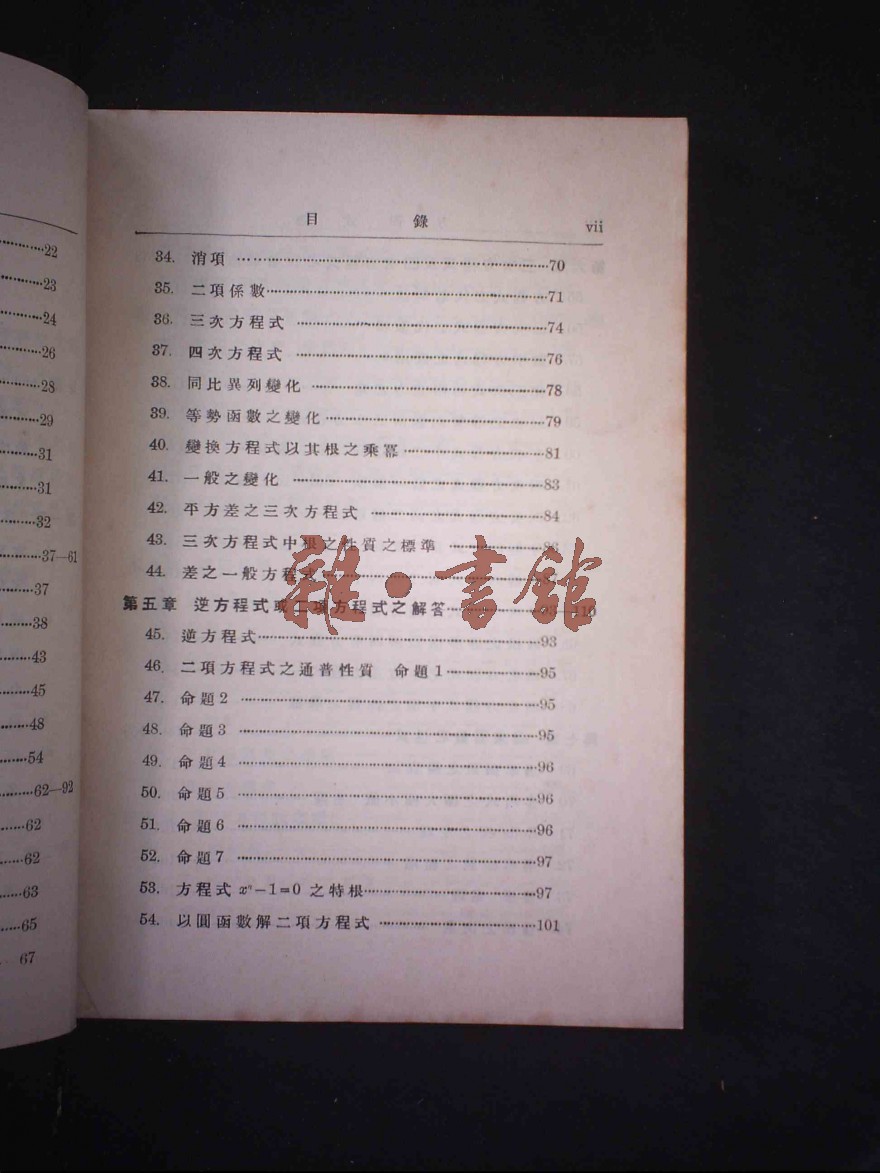 22
23
24
26
28
29
31
31
32
37—61
37
38
43
45
48
54
62—92
62
62
63
65
67
目 錄 vii
34. 消項 ……70
35. 二項係數……71
36. 三次方程式 ……74
37. 四次方程式 ……76
38. 同比異列變化 ……78
39. 等勢函數之變化……79
40. 變換方程式以其根之乘冪……81
41. 一般之變化 ……83
42. 平方差之三次方程式 ……84
43. 三次方程式中根之性質之標準 ……
44. 差之一般方程式……
第五章 逆方程式或二項方程式之解答……93—110
45. 逆方程式……93
46. 二項方程式之通普性質 命題1……95
47. 命題2 ……95
48. 命題3 ……95
49. 命題4 ……96
50. 命題5 ……96
51. 命題6 ……96
52. 命題7 ……97
53. 方程式 xⁿ−1=0 之特根……97
54. 以圓函數解二項方程式 ……101
雜·書館